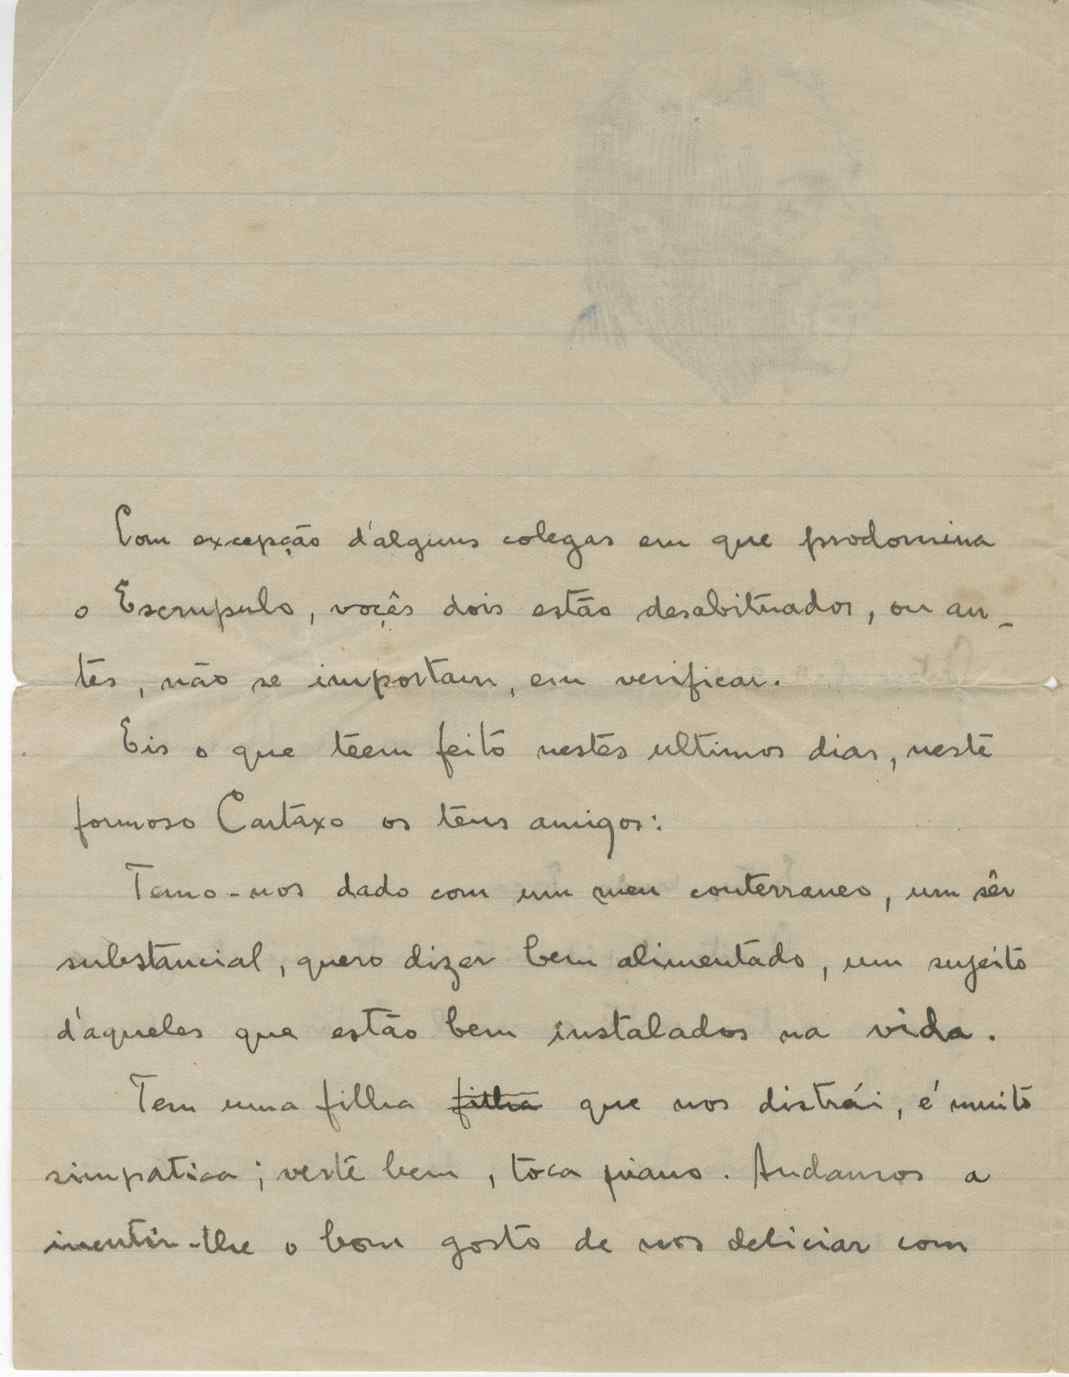 Com excepção d'alguns colegas em que prodomina
o Escrupulo, voçês dois estão desabituados, ou an-
tes, não se importam, em verificar.
Eis o que têem feito nestes ultimos dias, neste
formoso Cartaxo os teus amigos:
Temo-nos dado com um meu conterraneo, um sêr
substancial, quero dizer bem alimentado, um sujeito
d'aqueles que estão bem instalados na vida.
Tem uma filha filha que nos distrái, é muito
simpatica; veste bem, toca piano. Andamos a
incutir-lhe o bom gosto de nos deliciar com